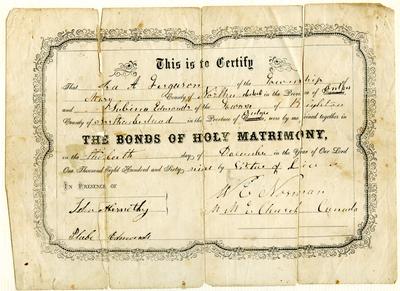 This is to Certify
That Ira A. Ferguson of the Township
of County of Northern district in the Province of Ontario
and Edmonds of the Town of Brighton
County of Northumberland in the Province of were by me joined together in
THE BONDS OF HOLY MATRIMONY,
on the day of December in the Year of our Lord
One Thousand Eight Hundred and Sixty nine by Virtue of
IN PRESENCE OF
W. C. Norman
John Abernethy
M. E. Church Canada
Phebe Edmonds